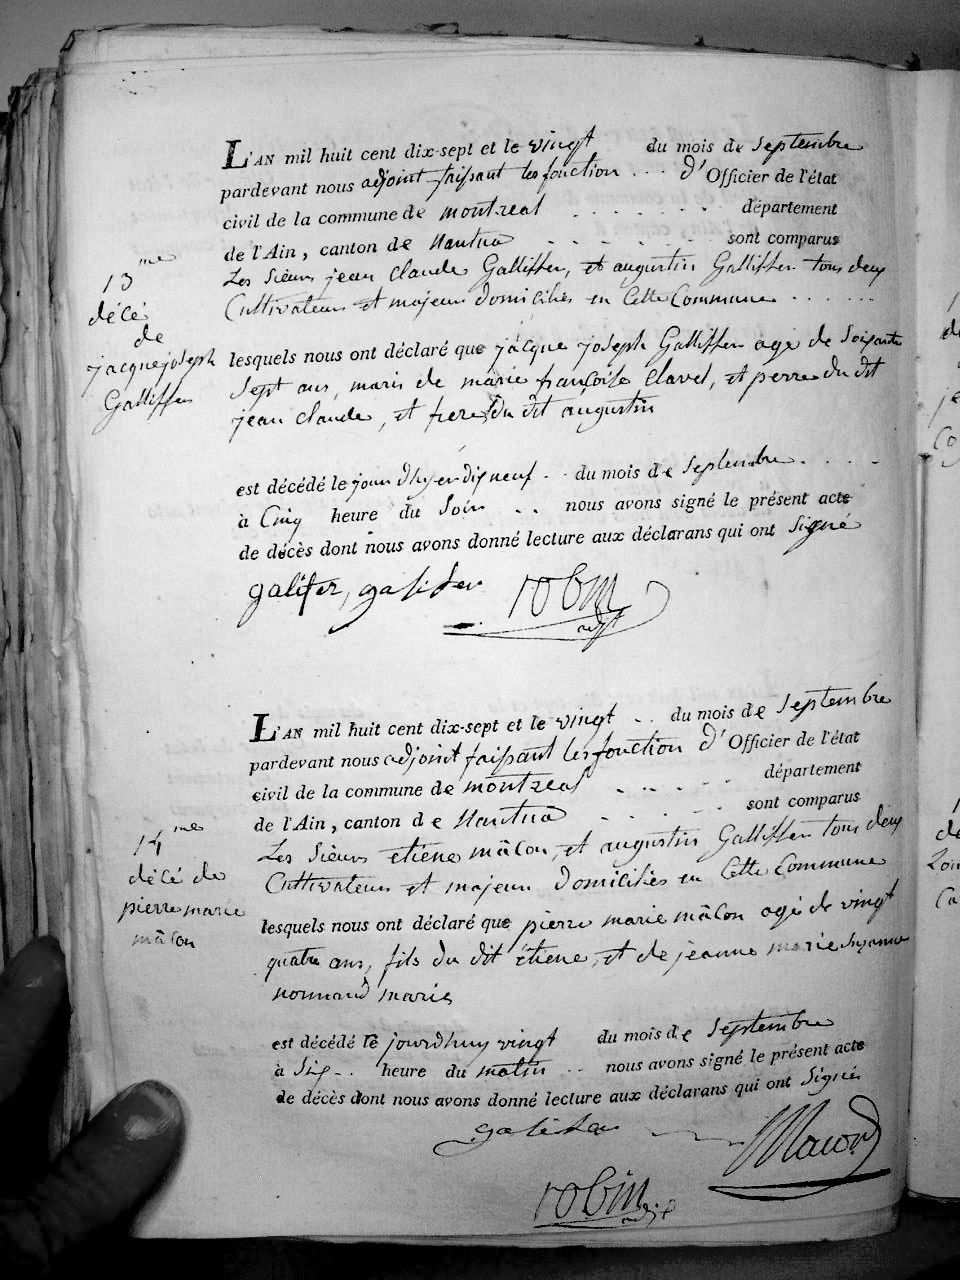 L'AN mil huit cent dix-sept et le vingt du mois de Septembre
pardevant nous adjoint faisant les fonction . . . d'Officier de l'état
civil de la commune de montreal . . . . . . . département
de l'Ain, canton de Nantua . . . . . . sont comparus
13me
décé
de
jacque joseph
Galliffer
Les Sieurs jean Claude Galliffer, et augustin Galliffer tous deux
Cultivateurs et majeur domiciliés en Cette Commune . . . . . .
lesquels nous ont déclaré que jacque joseph Galliffer agé de Soixante
Sept ans, maris de marie françoise Clavel, et perre du dit
jean Claude, et frere du dit augustin
est décédé le jour d'hyer dixneuf . . du mois de Septembre . . . .
à Cinq heure du Soir . . nous avons signé le présent acte
de décès dont nous avons donné lecture aux déclarans qui ont Signé
galifer, galifer robin
adjt
L'AN mil huit cent dix-sept et le vingt . . du mois de Septembre
pardevant nous adjoint faisant les fonction d'Officier de l'état
civil de la commune de montreal . . . . département
de l'Ain, canton de Nantua . . . . . sont comparus
14me
décé de
pierre marie
mâcon
Les Sieurs etiene mâcon, et augustin Galliffer tous deux
Cultivateurs et majeur domiciliés en Cette Commune
lesquels nous ont déclaré que pierre marie mâcon agé de vingt
quatre ans, fils du dit étiene, et de jeanne marie Suzanne
normand maries
est décédé le jourdhuy vingt du mois de Septembre
à Six . . heure du matin . . nous avons signé le présent acte
de décès dont nous avons donné lecture aux déclarans qui ont Signés
galifer Macon
robin adjt